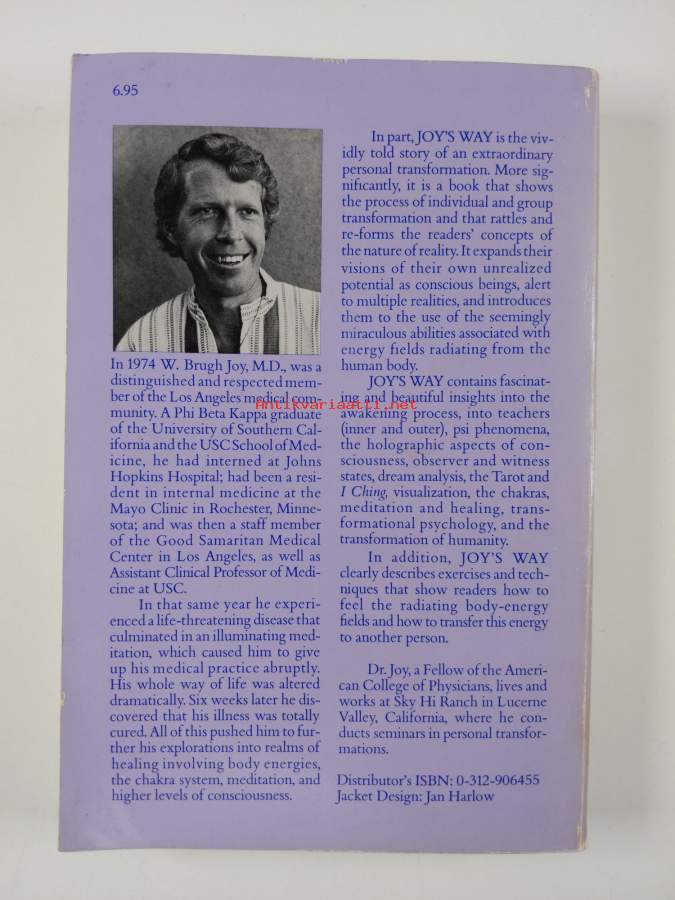 6.95
In 1974 W. Brugh Joy, M.D., was a
distinguished and respected mem-
ber of the Los Angeles medical com-
munity. A Phi Beta Kappa graduate
of the University of Southern Cal-
ifornia and the USC School of Med-
icine, he had interned at Johns
Hopkins Hospital; had been a resi-
dent in internal medicine at the
Mayo Clinic in Rochester, Minne-
sota; and was then a staff member
of the Good Samaritan Medical
Center in Los Angeles, as well as
Assistant Clinical Professor of Medi-
cine at USC.
In that same year he experi-
enced a life-threatening disease that
culminated in an illuminating med-
itation, which caused him to give
up his medical practice abruptly.
His whole way of life was altered
dramatically. Six weeks later he dis-
covered that his illness was totally
cured. All of this pushed him to fur-
ther his explorations into realms of
healing involving body energies,
the chakra system, meditation, and
higher levels of consciousness.
In part, JOY'S WAY is the viv-
idly told story of an extraordinary
personal transformation. More sig-
nificantly, it is a book that shows
the process of individual and group
transformation and that rattles and
re-forms the readers' concepts of
the nature of reality. It expands their
visions of their own unrealized
potential as conscious beings, alert
to multiple realities, and introduces
them to the use of the seemingly
miraculous abilities associated with
energy fields radiating from the
human body.
JOY'S WAY contains fascinat-
ing and beautiful insights into the
awakening process, into teachers
(inner and outer), psi phenomena,
the holographic aspects of con-
sciousness, observer and witness
states, dream analysis, the Tarot and
I Ching, visualization, the chakras,
meditation and healing, trans-
formational psychology, and the
transformation of humanity.
In addition, JOY'S WAY
clearly describes exercises and tech-
niques that show readers how to
feel the radiating body-energy
fields and how to transfer this energy
to another person.
Dr. Joy, a Fellow of the Ameri-
can College of Physicians, lives and
works at Sky Hi Ranch in Lucerne
Valley, California, where he con-
ducts seminars in personal transfor-
mations.
Distributor's ISBN: 0-312-906455
Jacket Design: Jan Harlow
Antikvariaatti.net